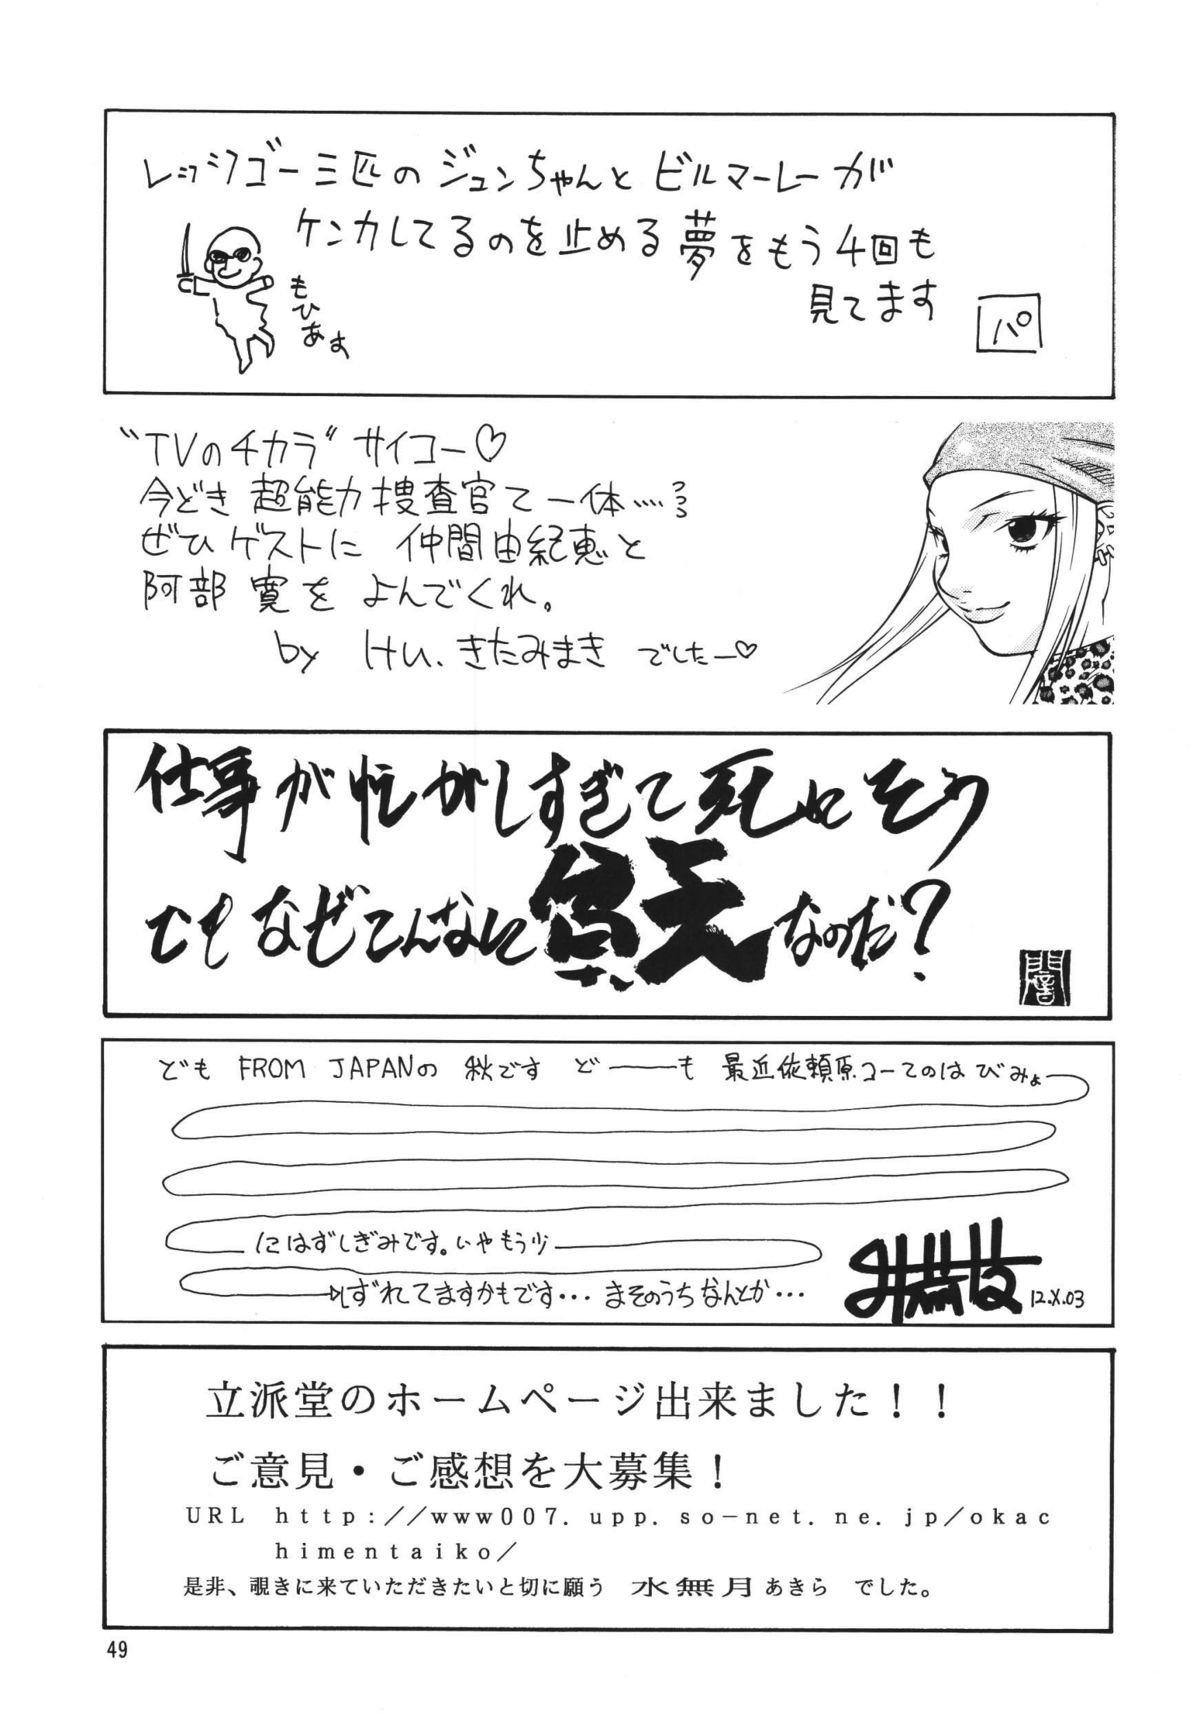 レッツゴー三匹のジュンちゃんとビルマーレーが
ケンカしてるのを止める夢をもう4回も
見てます
パ
もひ
"TVのチカラ" サイコー♡
今どき 超能力捜査官て一体……
ぜひゲストに 仲間由紀恵と
阿部 寛を よんでくれ。
by けい.きたみまき でしたー♡
仕事が忙がしすぎて死にそう
でもなぜこんなに貧乏なのだ?
闇
ども FROM JAPANの 秋です ど―――も 最近依頼原コーてのは びみょ
にはずしぎみです。いやもう少
しずれてますかもです・・・ まそのうちなんとか・・・
12.X.03
立派堂のホームページ出来ました！！
ご意見・ご感想を大募集！
URL http://www007.upp.so-net.ne.jp/okac
himentaiko/
是非、覗きに来ていただきたいと切に願う 水無月あきら でした。
49